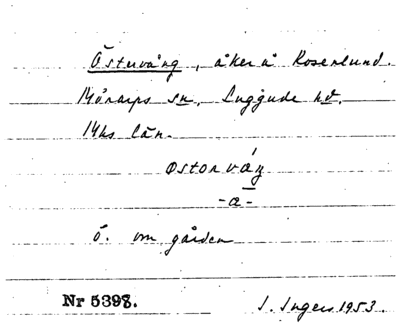 Östervång, åker å Rosenlund.
Mörarps sn. Luggude hd.
Mhs län.
østorváŋ
-a-
ö. om gården
Nr 5398.
I. Ingers 1953.